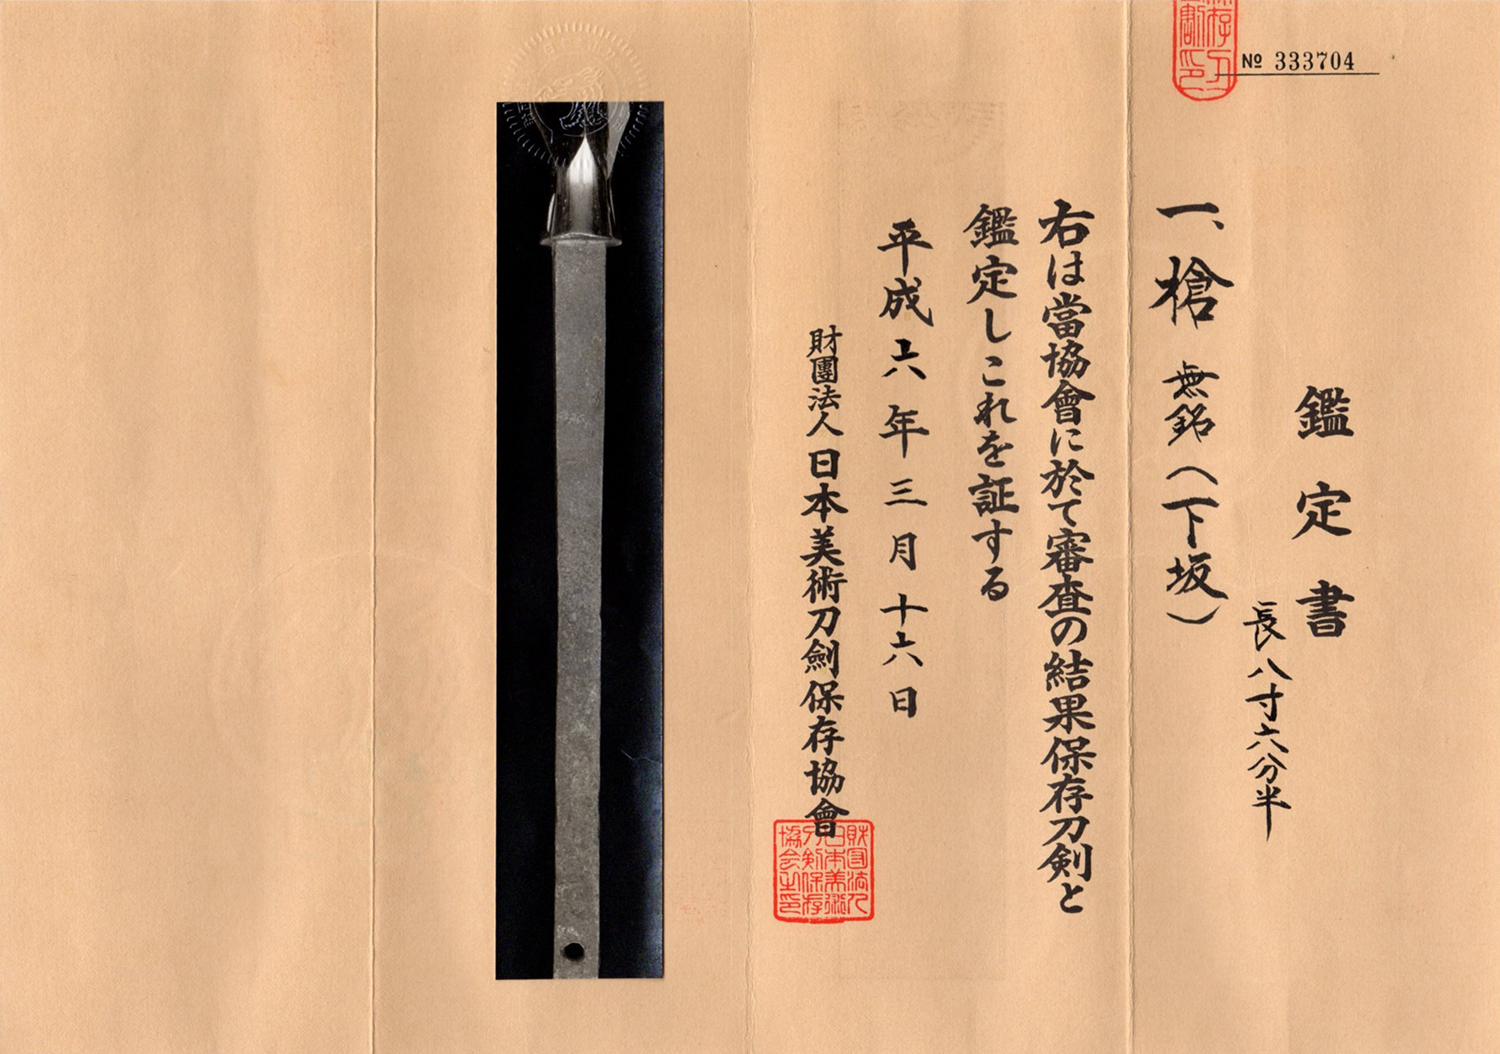 № 333704
鑑定書
長八寸六分半
一、槍 無銘(下坂)
右は當協會に於て審査の結果保存刀剣と
鑑定しこれを証する
平成六年三月十六日
財團法人日本美術刀劍保存協會
財団法人
日本美術
刀剣保存
協会之印